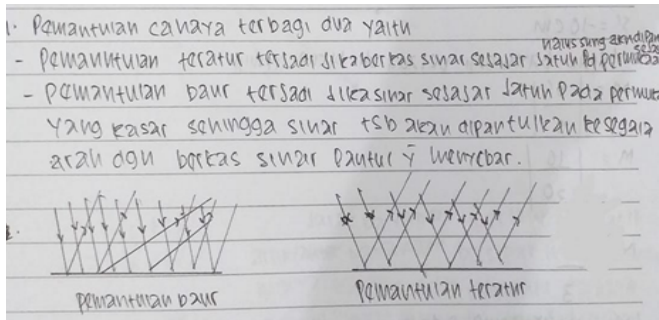 1. Pemantulan cahaya terbagi dua yaitu
- Pemanntulan teratur terjadi jika berkas sinar sejajar jatuh pd permukaa
halus sung akndipan
- pemantulan baur terjadi jika sinar sejajar jatuh pada permuk
yang kasar sehingga sinar tsb akan dipantulkan kesegala
arah dgn berkas sinar pantul ȳ menyebar.
2.
pemantulan baur
Pemantulan teratur